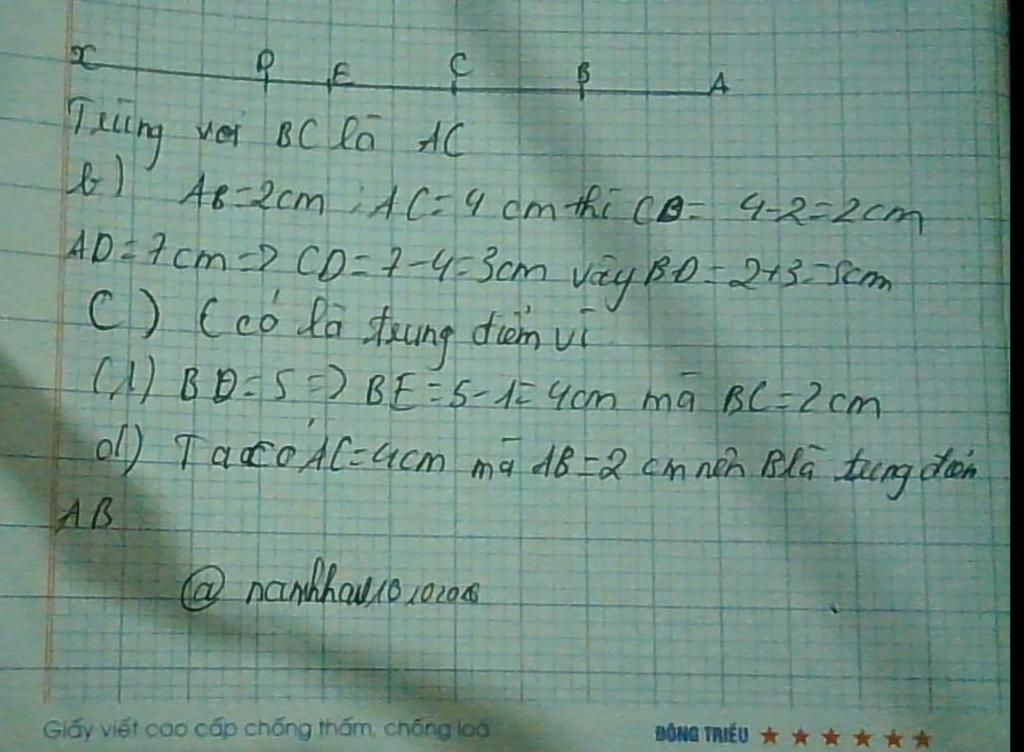 x D E C B A
Trùng với BC là AC
b) AB=2cm ; AC=4 cm thì CB= 4-2=2cm
AD=7cm=> CD=7-4=3cm vậy BD=2+3=5cm
C) C có là trung điểm vì
(1) BD=5=> BE=5-1=4cm mà BC=2cm
d) Ta có AC=4cm mà AB=2 cm nên B là trung điểm
AB
@
Giấy viết cao cấp chống thấm, chống loá
ĐÔNG TRIỀU ★ ★ ★ ★ ★ ★